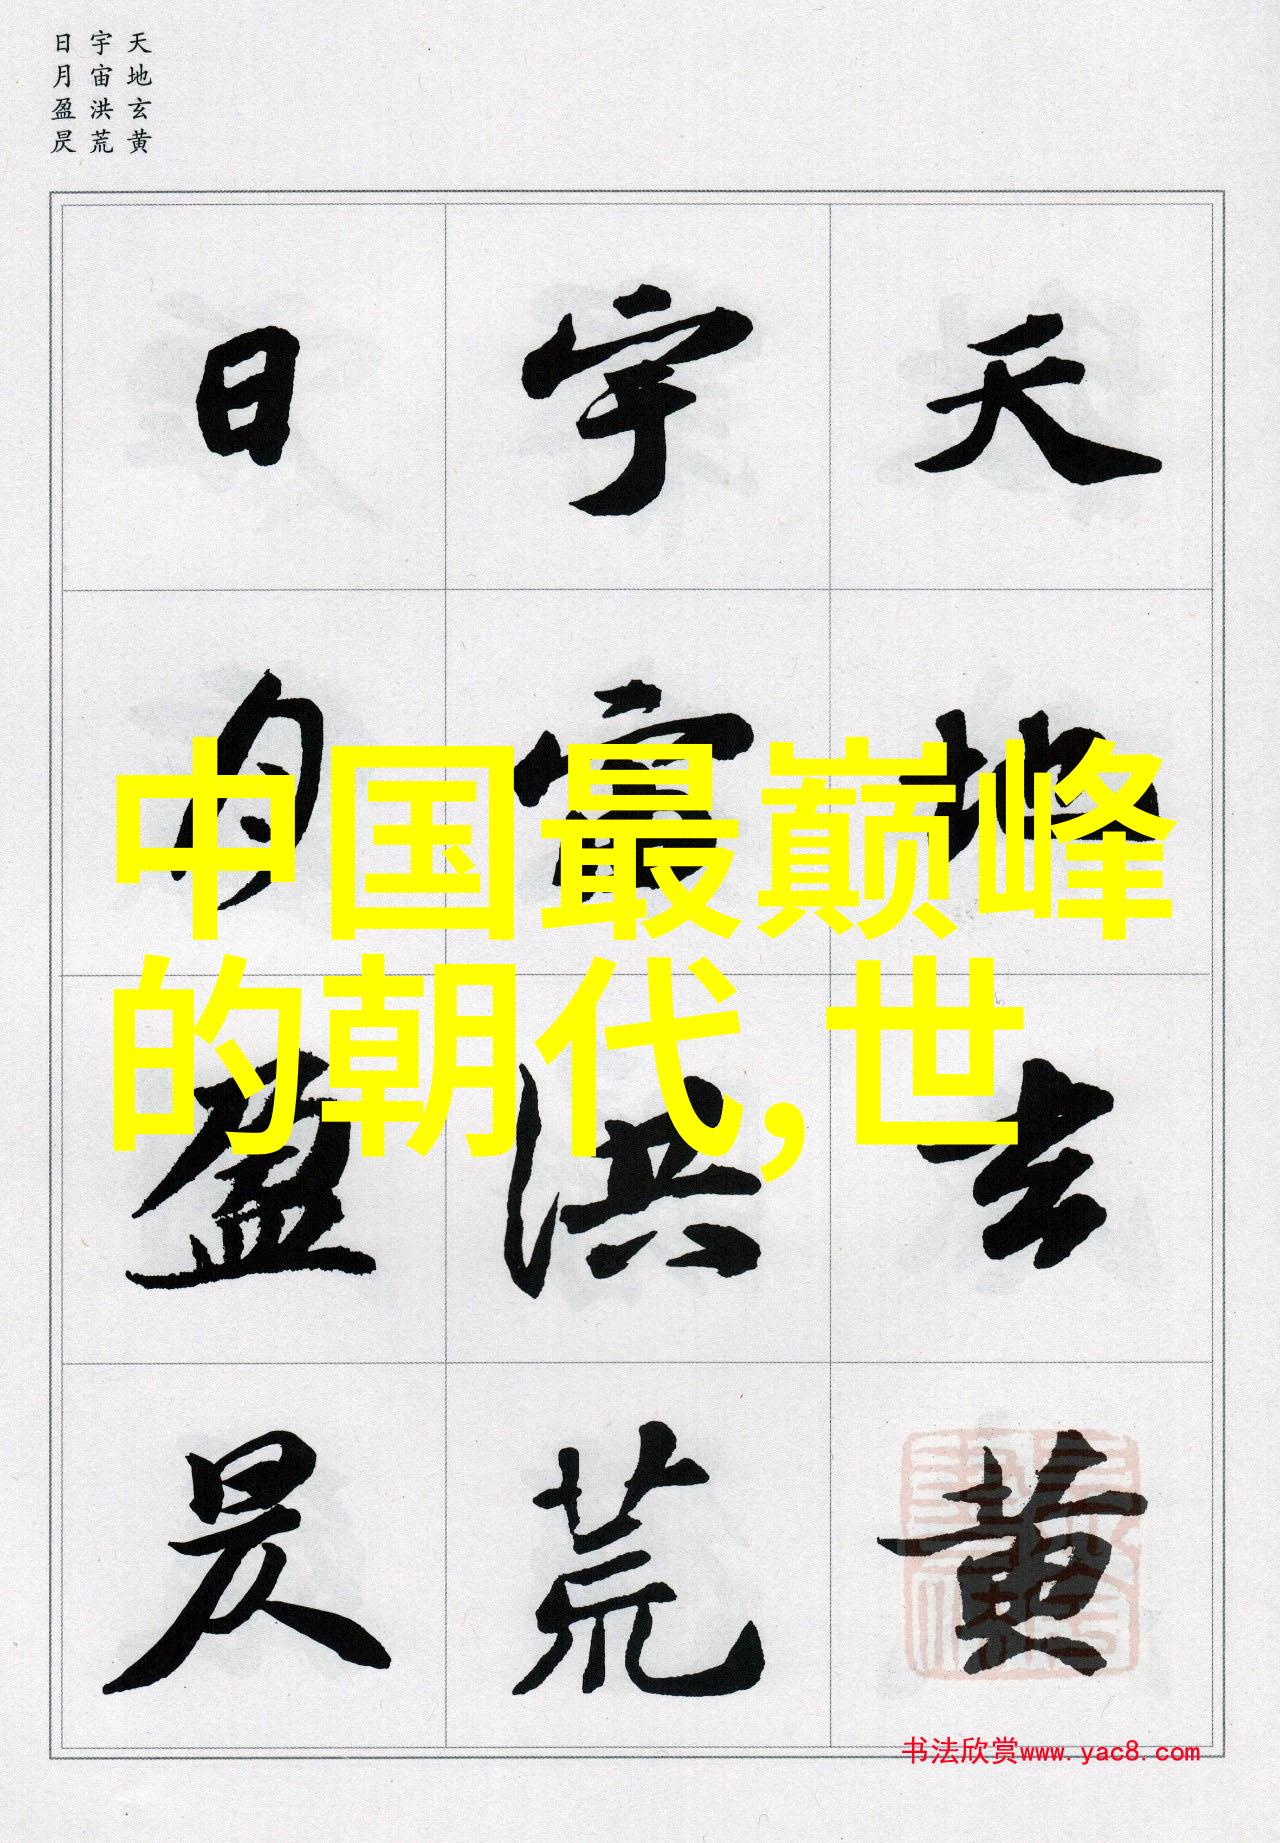 天地玄黄
宇宙洪荒
日月盈昃
天地玄黄
宇宙洪荒
日月盈昃
中国最巅峰
的朝代,世
书法欣赏www.yac8.com